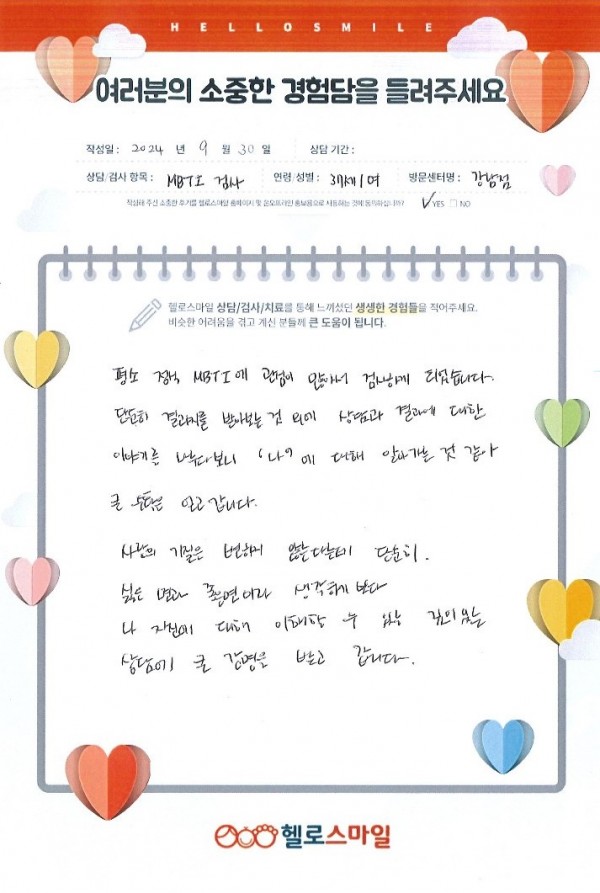 HELLOSMILE
여러분의 소중한 경험담을 들려주세요
작성일 : 2024 년 9 월 30 일 상담 기간 :
상담/검사 항목 : MBTI 검사 연령/성별 : 37세/여 방문센터명 : 강남점
작성해 주신 소중한 후기를 헬로스마일 홈페이지 및 온오프라인 홍보용으로 사용하는 것에 동의하십니까? ✓ YES □ NO
헬로스마일 상담/검사/치료를 통해 느끼셨던 생생한 경험들을 적어주세요.
비슷한 어려움을 겪고 계신 분들께 큰 도움이 됩니다.
평소 정식 MBTI에 관심이 많아서 검사하게 되었습니다.
단순히 결과지를 받아보는 것 외에 상담과 결과에 대한
이야기를 나누다보니 '나'에 대해 알아가는 것 같아
큰 얻고 갑니다.
사람의 기질은 변하지 않는다는데 단순히.
싫은 면과 좋은면이라 생각하기 보다
나 자신에 대해 이해할 수 있는
상담에 큰 감명을 받고 갑니다.
헬로스마일